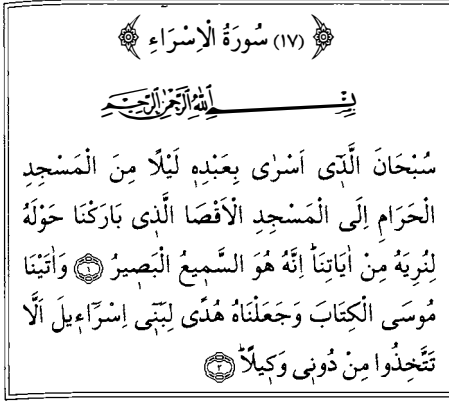 (١٧) سُورَةُ الْاِسْرَاءِ
بِسْمِ اللّٰهِ الرَّحْمٰنِ الرَّحِيمِ
سُبْحَانَ الَّذٖٓى اَسْرٰى بِعَبْدِهٖ لَيْلًا مِنَ الْمَسْجِدِ
الْحَرَامِ اِلَى الْمَسْجِدِ الْاَقْصَا الَّذٖى بَارَكْنَا حَوْلَهُ
لِنُرِيَهُ مِنْ اٰيَاتِنَاؕ اِنَّهُ هُوَ السَّمٖيعُ الْبَصٖيرُ ﴿١﴾ وَاٰتَيْنَا
مُوسَى الْكِتَابَ وَجَعَلْنَاهُ هُدًى لِبَنٖٓى اِسْرَٓاءٖيلَ اَلَّا
تَتَّخِذُوا مِنْ دُونٖى وَكٖيلًاؕ ﴿٢﴾